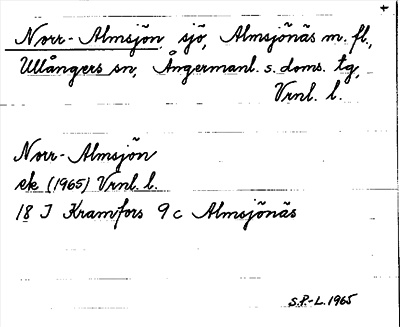 Norr-Almsjön, sjö, Almsjönäs m. fl.,
Ullångers sn, Ångermanl. s. doms. tg,
Vrnl. l.
Norr-Almsjön
ek (1965) Vrnl. l.
18 J Kramfors 9 c Almsjönäs
S.P.-L. 1965